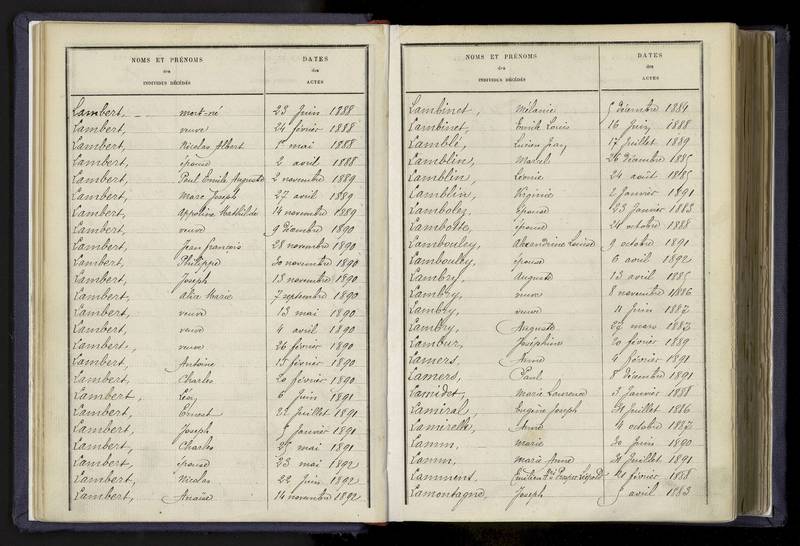 NOMS ET PRÉNOMS
des
INDIVIDUS DÉCÉDÉS
DATES
des
ACTES
Lambert, mort-né 23 Juin 1888
Lambert, veuve 24 février 1888
Lambert, Nicolas Albert 1er mai 1888
Lambert, épouse 2 avril 1888
Lambert, Paul Emile Auguste 2 novembre 1889
Lambert, Marc Joseph 27 avril 1889
Lambert, Appoline Mathilde 14 novembre 1889
Lambert, veuve 9 décembre 1890
Lambert, Jean françois 28 novembre 1890
Lambert, Philippe 30 novembre 1890
Lambert, Joseph 13 novembre 1890
Lambert, Alice Marie 7 septembre 1890
Lambert, veuve 13 mai 1890
Lambert, veuve 4 avril 1890
Lambert, veuve 26 février 1890
Lambert, Antoine 15 février 1890
Lambert, Charles 20 février 1890
Lambert, Léon 6 Juin 1891
Lambert, Ernest 22 Juillet 1891
Lambert, Joseph Janvier 1891
Lambert, Charles 25 mai 1891
Lambert, épouse 23 mai 1892
Lambert, Nicolas 22 Juin 1892
Lambert, Anaïse 14 novembre 1892
NOMS ET PRÉNOMS
des
INDIVIDUS DÉCÉDÉS
DATES
des
ACTES
Lambinet, Mélanie 5 décembre 1884
Lambinet, Emile Louis 16 Juin 1888
Lamblé, Lucien Jean 17 Juillet 1889
Lamblin, Marcel 26 Décembre 1885
Lamblin, Léonie 24 août 1885
Lamblin, Virginie 2 Janvier 1891
Lambolez, Epouse 23 Janvier 1883
Lambotte, épouse 24 octobre 1888
Lambouley, Alexandrine Louise 9 octobre 1891
Lambouley, épouse 6 avril 1892
Lambry, Auguste 13 avril 1885
Lambry, veuve 8 novembre 1886
Lambry, veuve 11 Juin 1887
Lambry, Auguste 29 mars 1887
Lambur, Joséphine 20 février 1889
Lamers, Anne 4 février 1891
Lamers, Paul 8 décembre 1891
Lamidet, Marie Laurence 3 Janvier 1888
Lamiral, Eugène Joseph Juillet 1886
Lamirelle, Anne 4 octobre 1887
Lamm, Marie 30 Juin 1890
Lamm, Marie Anne Juillet 1891
Lammens, Prosper Léopold 21 février 1888
Lamontagne, Joseph avril 1883